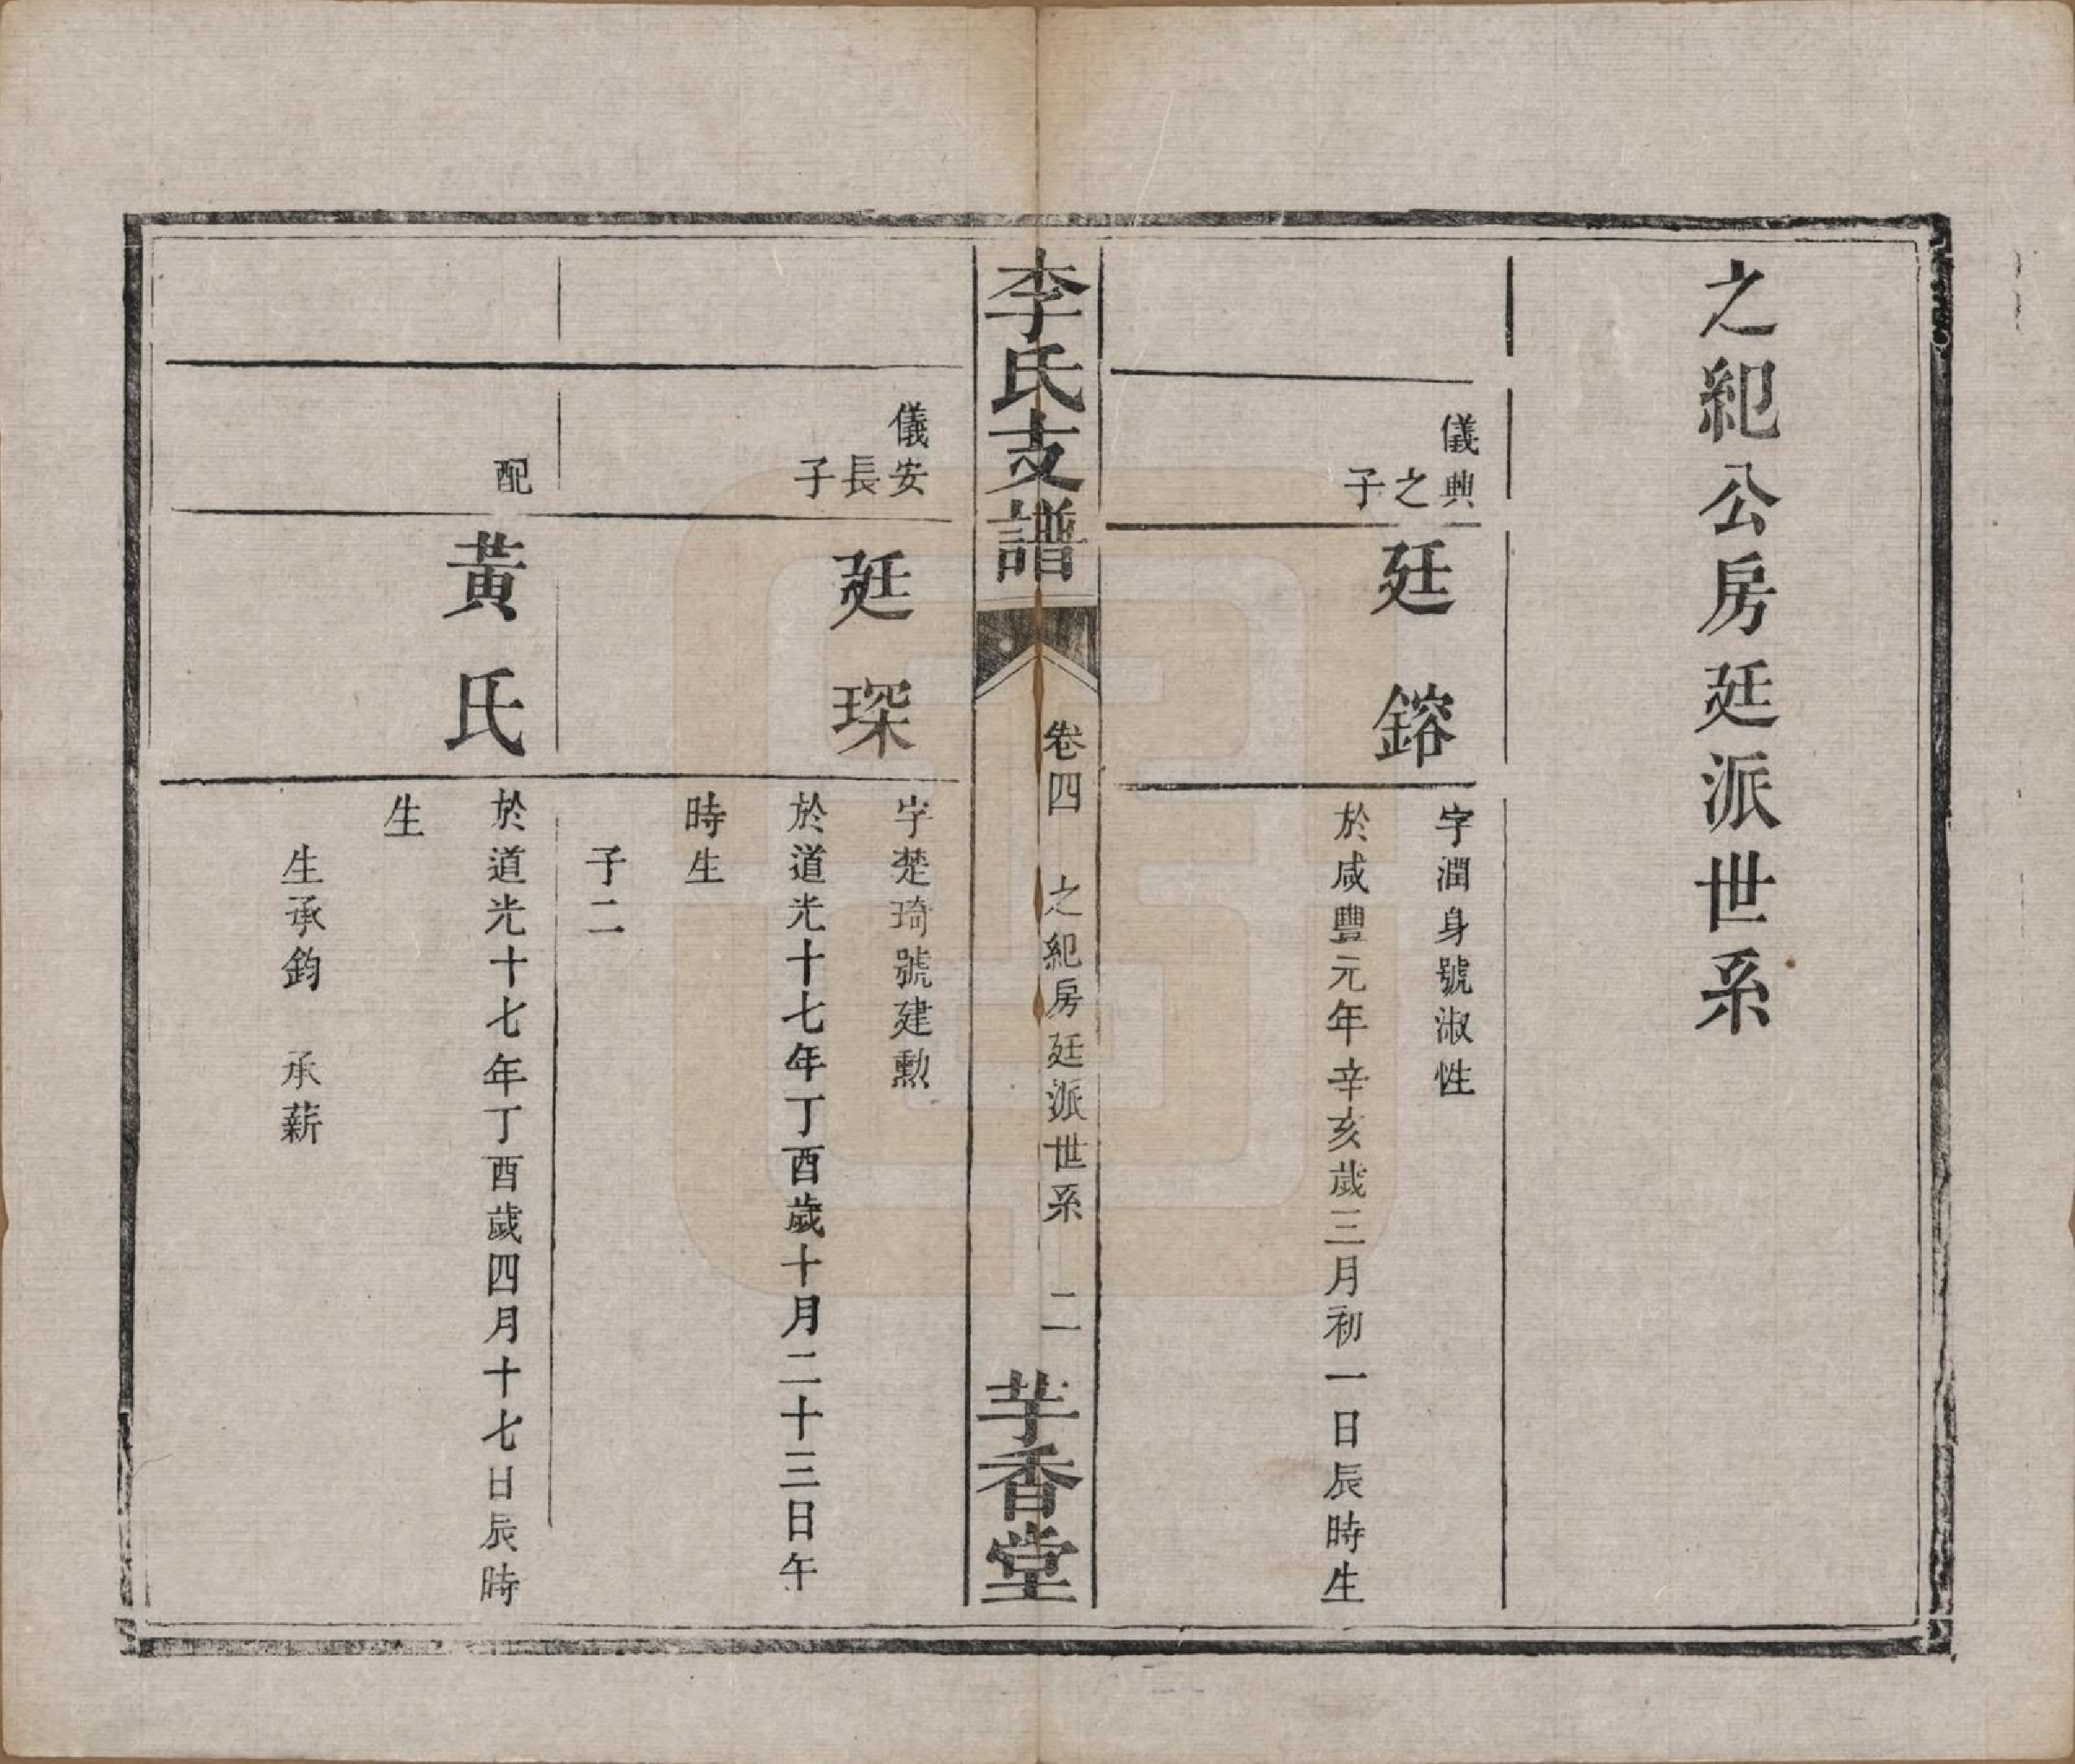 之紀公房廷派世系
儀興
之
子
廷鎔
字潤身號淑性
於咸豐元年辛亥歲三月初一日辰時生
李氏支譜
卷四 之紀房廷派世系 二
芋香堂
儀安
長
子
廷琛
字楚琦號建勲
於道光十七年丁酉歲十月二十三日午
時生
子二
配
黃氏
於道光十七年丁酉歲四月十七日辰時
生
生承鈞 承薪